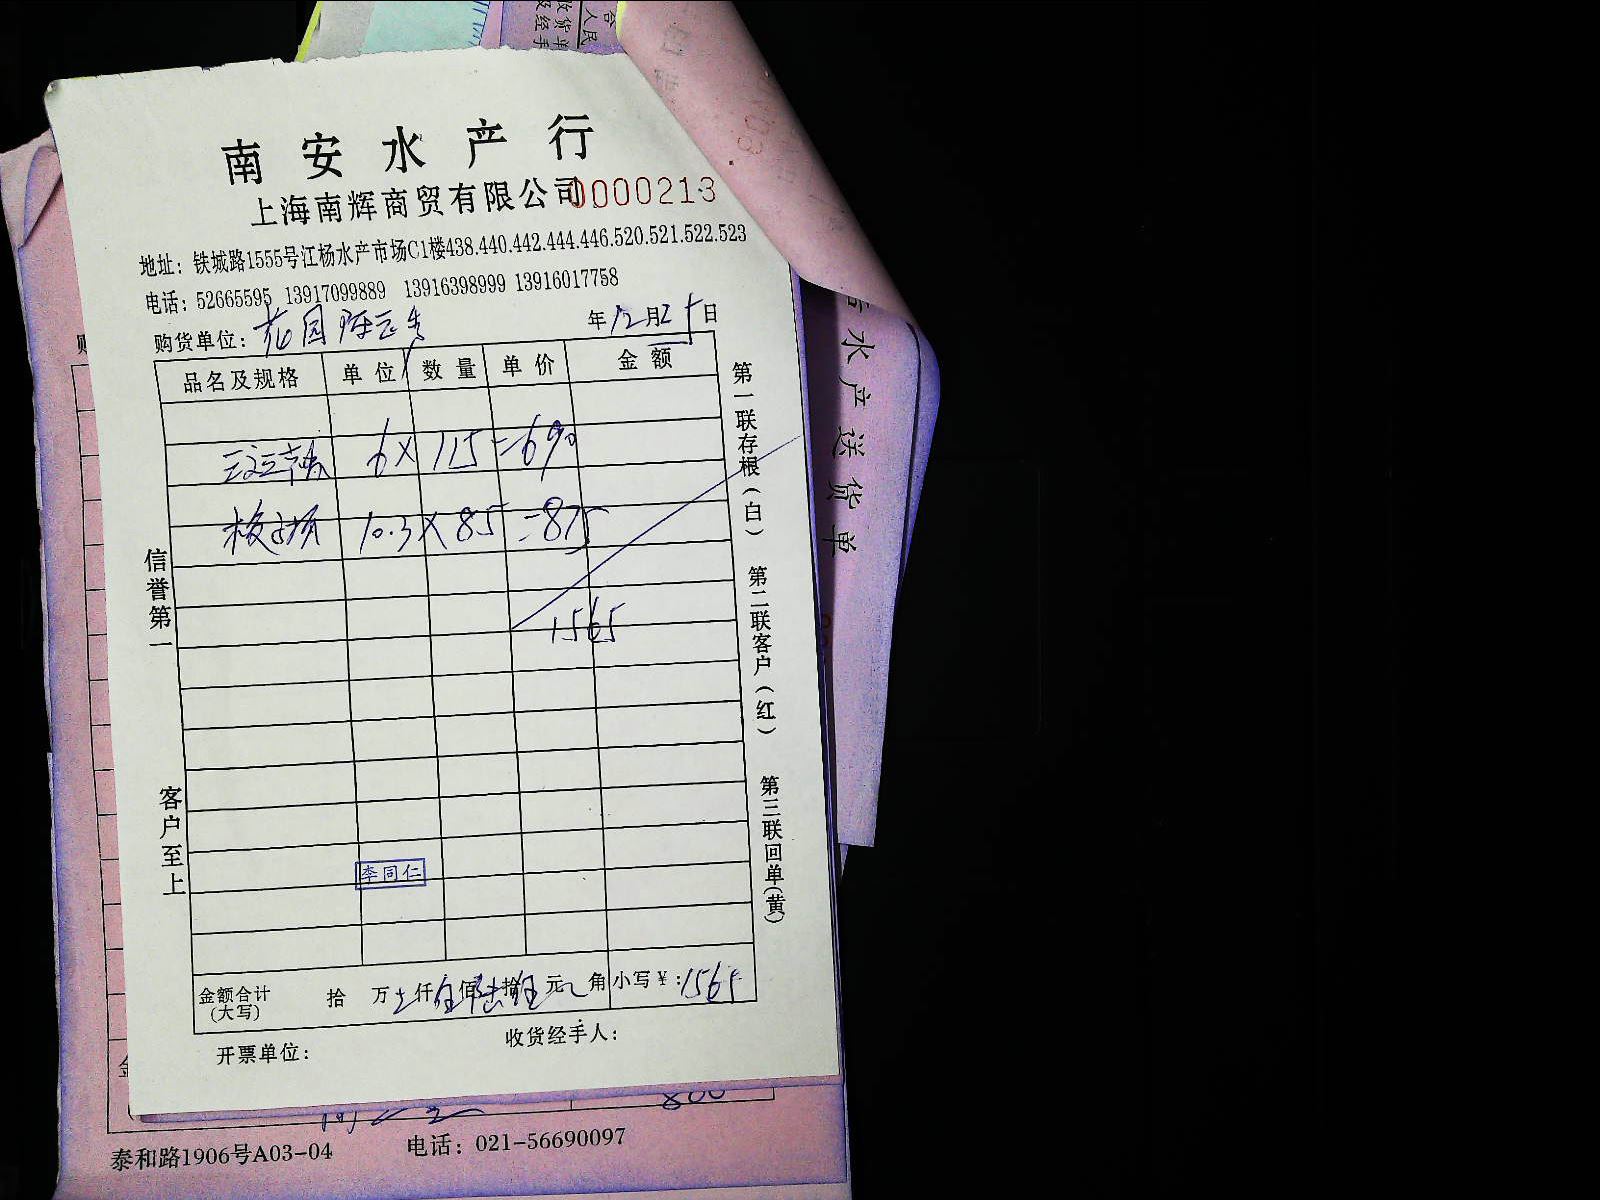 南安水产行
上海南辉商贸有限公司 0000213
地址：铁城路1555号江杨水产市场C1楼438.440.442.444.446.520.521.522.523
电话：52665595 13917099889 13916398999 13916017758
购货单位：花园 年12月2 日
品名及规格 单位 数量 单价 金额
6 × 115 = 690
10.3 × 85 = 875
1565
信誉第一
客户至上
第一联存根（白） 第二联客户（红） 第三联回单（黄）
李同仁
金额合计（大写） 拾 万 仟伍佰陆拾伍元 角 小写￥：1565
开票单位： 收货经手人：
水产送货单
泰和路1906号A03-04 电话：021-56690097
800